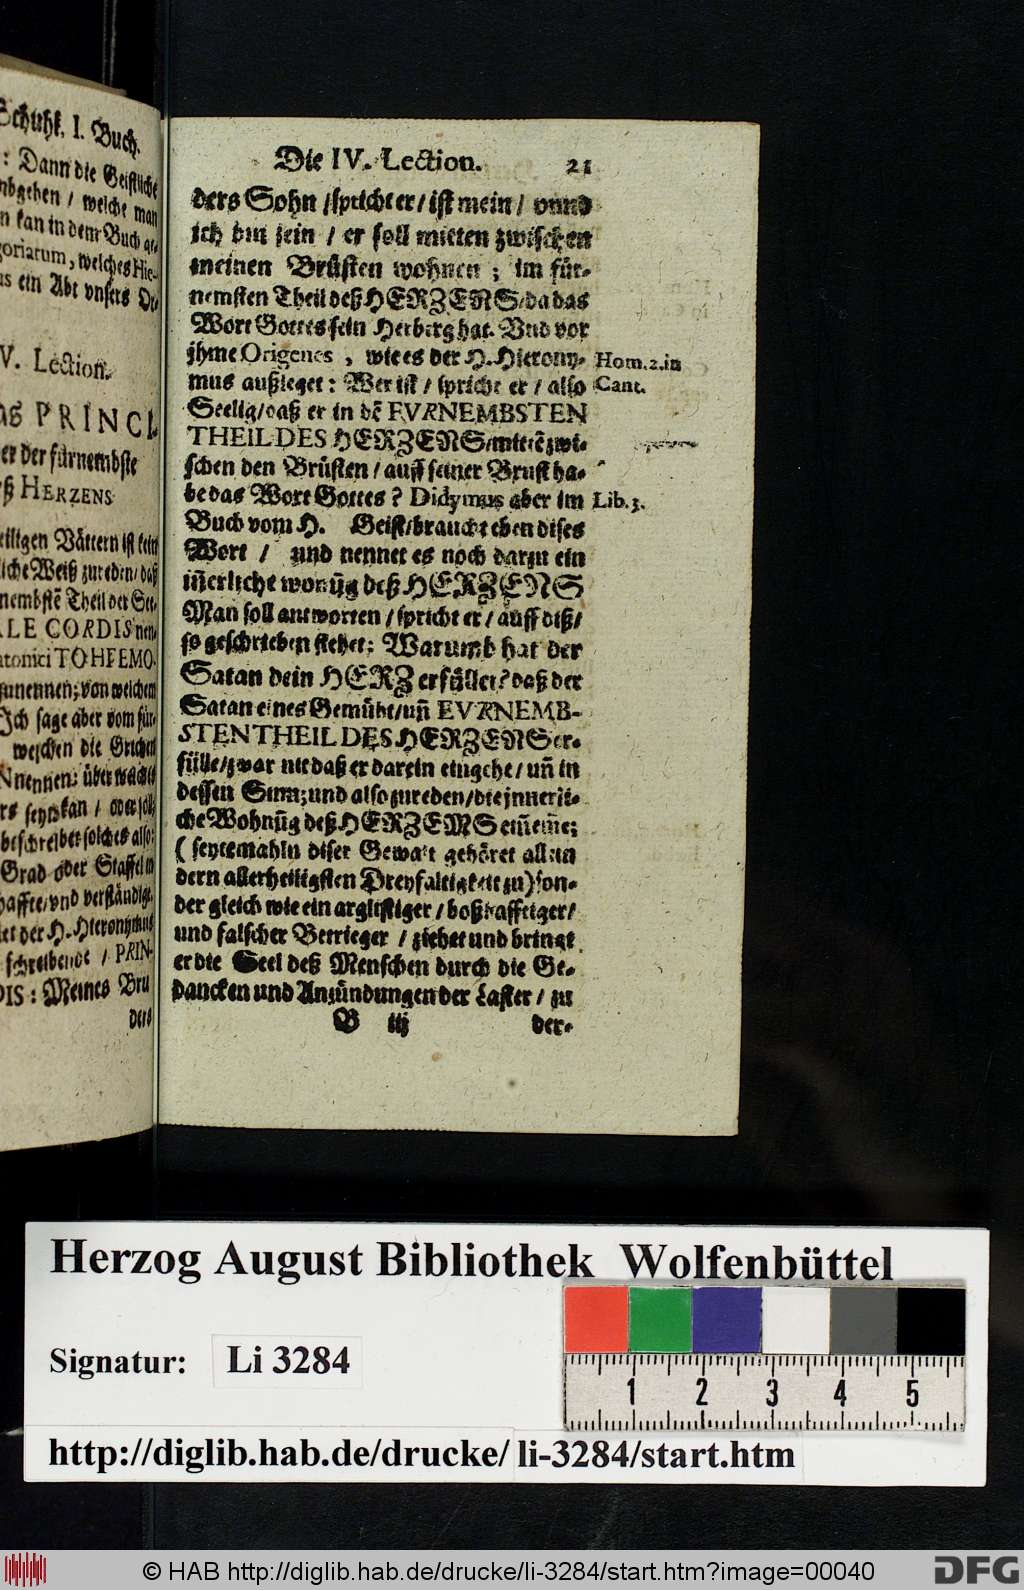 Schuhl. I. Buch.
: Dann die Geistliche
mbgehen / welche man
n kan in dem Buch al-
goriarum, welches Hie-
us ein Abt vnsers Or-
V. Lection.
PRINCI-
er der fürnembste
ß HERZENS
eiligen Vättern ist kein
liche Weiß zureden / daß
nembstē Theil der See-
ALE CORDIS nen-
atonici TO HEEMO-
zunennen; von welchem
Ich sage aber vom für-
welchen die Grichen
N nennen: über welches
rs seyn kan / oder soll;
beschreibet solches also:
Grad oder Staffel in
haffte / vnd verständige
tet der H. Hieronymus
schreibende / PRIN-
DIS: Meines Bru-
ders
Die IV. Lection. 21
ders Sohn / spricht er / ist mein / vnnd
ich bin sein / er soll mitten zwischen
meinen Brüsten wohnen ; im für-
nemsten Theil deß HERZENS / da das
Wort Gottes sein Herberg hat. Vnd vor
jhme Origenes , wie es der H. Hierony-
mus außleget : Wer ist / spricht er / also
Seelig / daß er in dē FVRNEMBSTEN
THEIL DES HERZENS / mittē zwi-
schen den Brüsten / auff seiner Brust ha-
be das Wort Gottes ? Didymus aber im
Buch vom H. Geist / braucht eben dises
Wort / und nennet es noch darzu ein
iñerliche wonūg deß HERZENS
Man soll antworten / spricht er / auff diß /
so geschrieben stehet : Warumb hat der
Satan dein HERZ erfüllet? daß der
Satan eines Gemüht / uñ FVRNEMB-
STEN THEIL DES HERZENS er-
fülle / zwar nit daß er darein eingehe / uñ in
dessen Sinn; und also zureden / die jnnerli-
che Wohnūg deß HERZEMS eiñeme;
( seytemahln diser Gewalt gehöret allein
dern allerheiligsten Dreyfaltigkeit zu) son-
der gleich wie ein arglistiger / boßhafftiger /
und falscher Betrieger / ziehet und bringt
er die Seel deß Menschen durch die Ge-
dancken und Anzündungen der Laster / zu
B iij der-
Hom. 2. in
Cant.
Lib. 3.
Herzog August Bibliothek Wolfenbüttel
Signatur: Li 3284
1 2 3 4 5
http://diglib.hab.de/drucke/ li-3284/start.htm
© HAB http://diglib.hab.de/drucke/li-3284/start.htm?image=00040
DFG